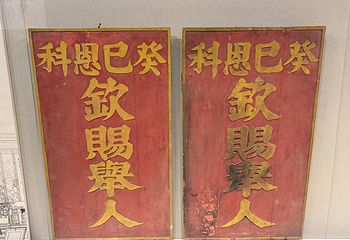 癸巳恩科
欽賜舉人
癸巳恩科
欽賜舉人